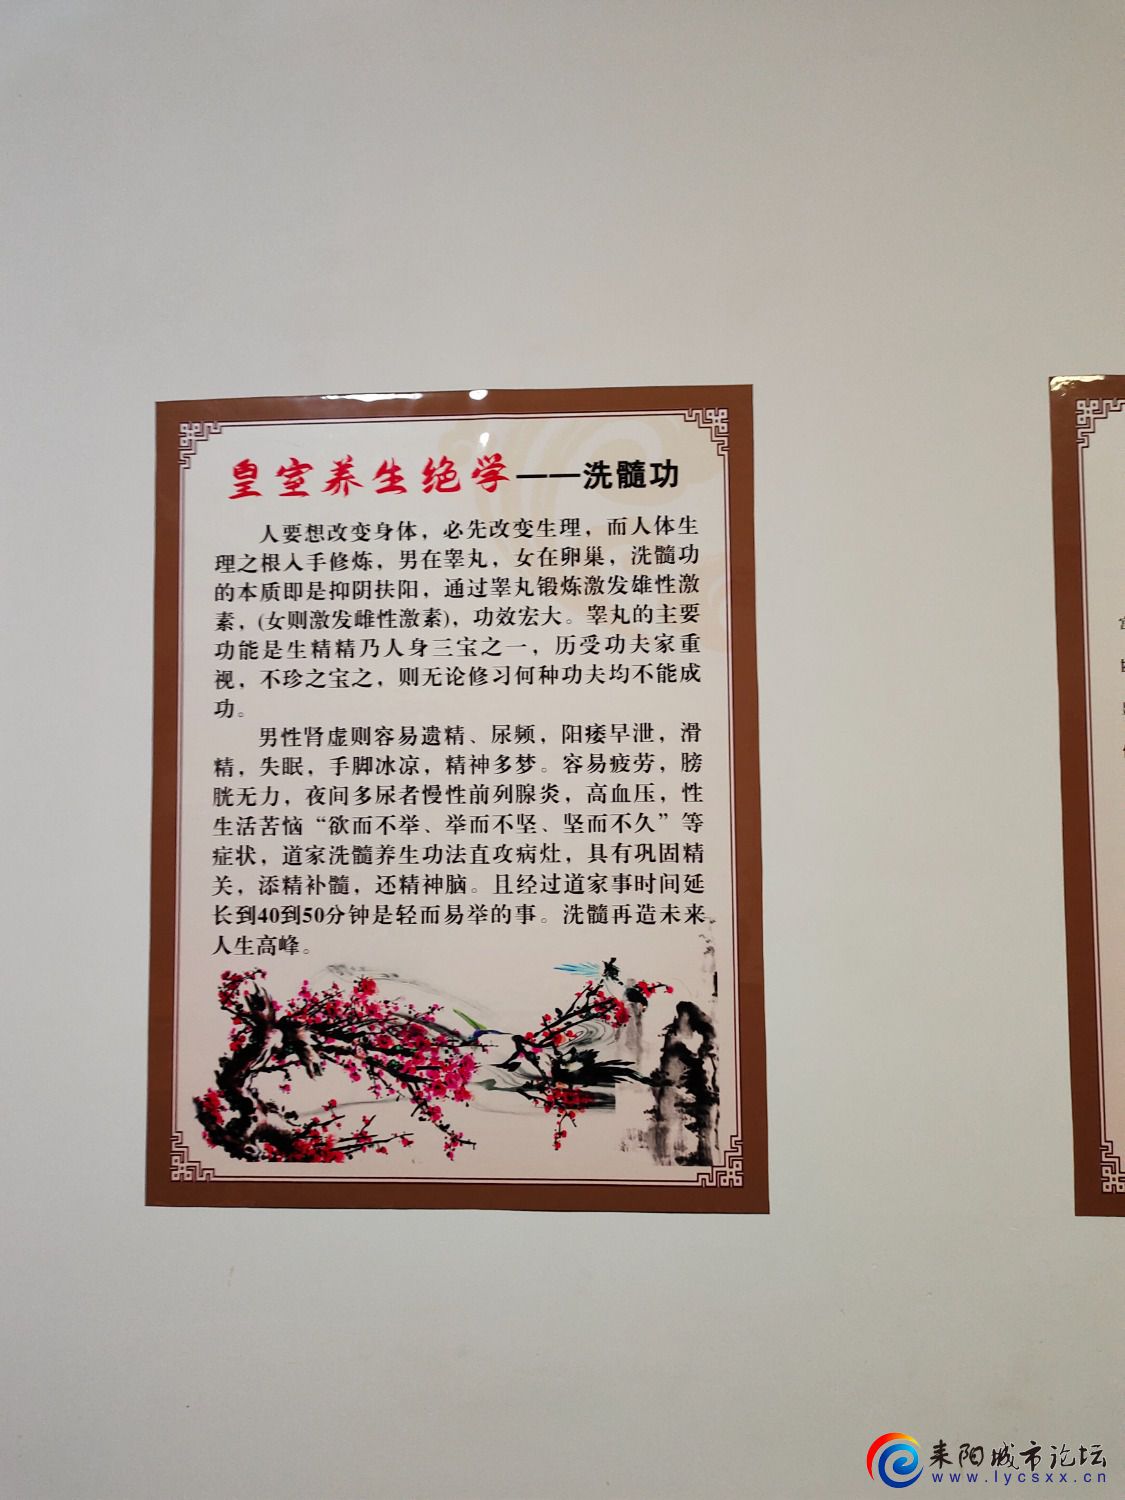 皇室养生绝学——洗髓功
人要想改变身体，必先改变生理，而人体生
理之根入手修炼，男在睾丸，女在卵巢，洗髓功
的本质即是抑阴扶阳，通过睾丸锻炼激发雄性激
素，(女则激发雌性激素)，功效宏大。睾丸的主要
功能是生精精乃人身三宝之一，历受功夫家重
视，不珍之宝之，则无论修习何种功夫均不能成
功。
男性肾虚则容易遗精、尿频，阳痿早泄，滑
精，失眠，手脚冰凉，精神多梦。容易疲劳，膀
胱无力，夜间多尿者慢性前列腺炎，高血压，性
生活苦恼“欲而不举、举而不坚、坚而不久”等
症状，道家洗髓养生功法直攻病灶，具有巩固精
关，添精补髓，还精神脑。且经过道家事时间延
长到40到50分钟是轻而易举的事。洗髓再造未来
人生高峰。
耒阳城市论坛
www.lycsxx.cn